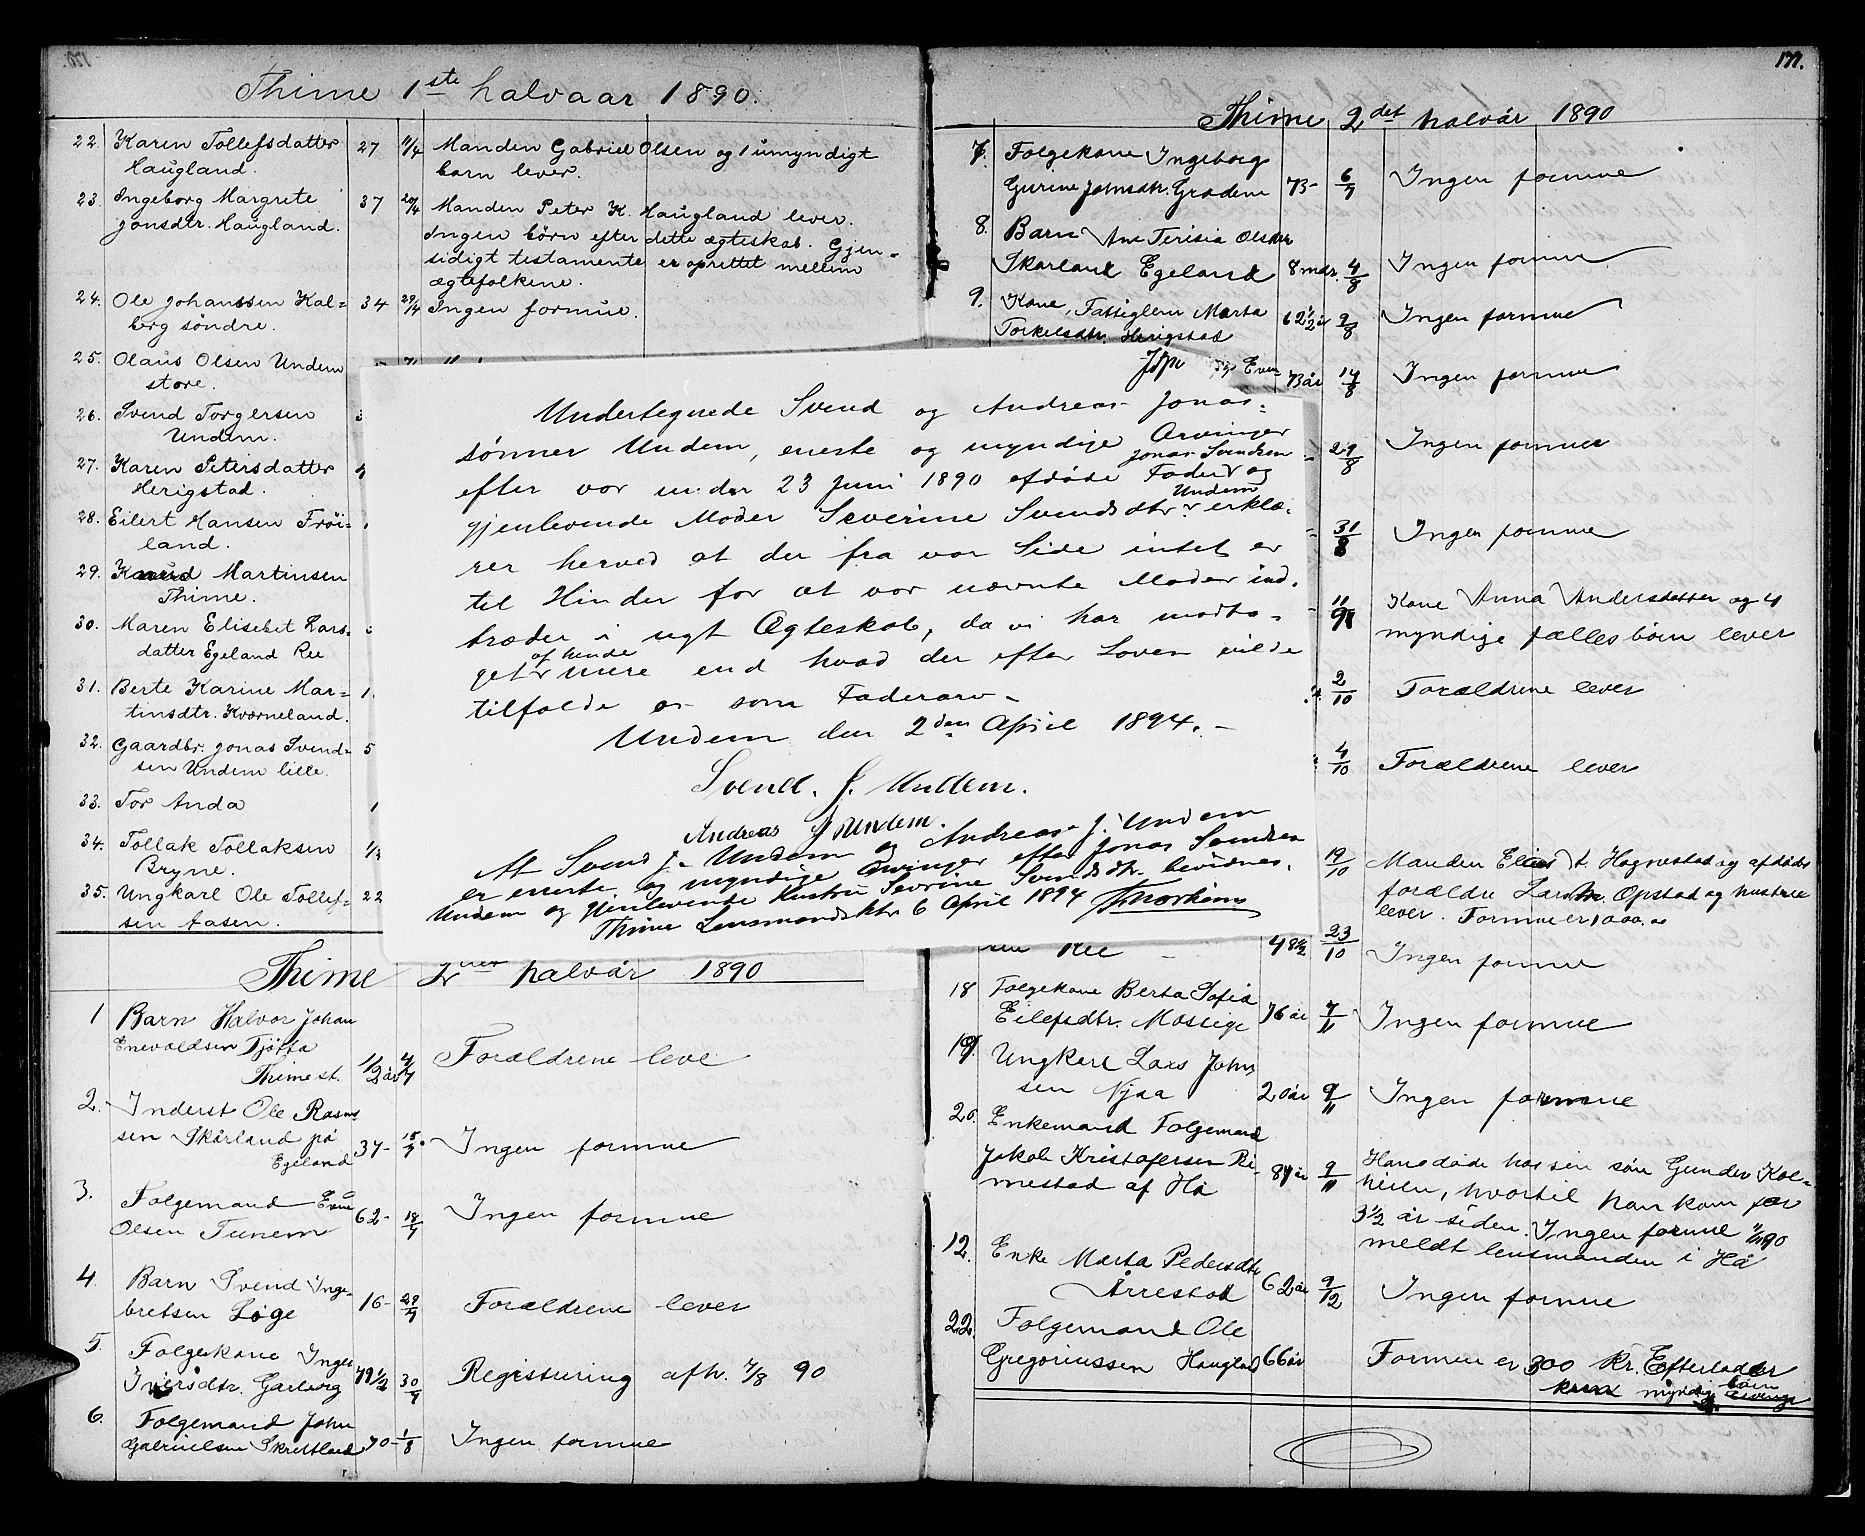 Thime 1ste halvaar 1890.
22. Karen Tollefsdatter 27 11/4 Manden Gabriel Olsen og 1 umyndigt
Haugland. barn lever.
23. Ingeborg Margrete 37 20/4 Manden Peter K. Haugland lever.
Jonsdtr. Haugland. Ingen börn efter dette ægteskab. Gjen-
sidigt testamente er oprettet mellem
ægtefolkene.
24. Ole Johanssen Kal= 34 29/4 Ingen formue.
berg søndre.
25. Olaus Olsen Undem
store.
26. Svend Torgersen
Undem.
27. Karen Petersdatter
Herigstad.
28. Eilert Hansen Fröi-
land.
29. Knud Martinsen
Thime.
30. Maren Elisebet Lars-
datter Egeland Ree
31. Berte Karine Mar= 1
tinsdtr. Kværneland.
32. Gaardbr. Jonas Svend- 5
sen Undem lille.
33. Tor Anda 1
34. Tollak Tollaksen
Bryne.
35. Ungkarl Ole Tollef- 22
sen Aasen.
Thime halvår 1890
1 Barn Halvor Johan
Enevoldsen Tjøtta
Thime st. 1/2 år 4/7 Forældrene leve
2. Inderst Ole Rasmus
sen Skårland på 37- 15/7 Ingen formue
Egeland
3. Folgemand Enn
Olsen Tunem 62- 18/7 Ingen formue
4. Barn Svend Inge-
bretsen Løge 16- 29/7 Forældrene lever
5. Folgekone Inger
Iversdtr. Garborg 79 1/2 30/7 Registrering afh. 4/8 90
6. Folgemand John
Gabrielsen Skrettland 70- 1/8 Ingen formue
Undertegnede Svend og Andreas Jonas=
sønner Undem, eneste og myndige Arvinger
Jonas Svendsen
efter vor under 23 Juni 1890 afdöde Fader og
Undem
gjenlevende Moder Severine Svendsdtr. erklæ-
rer herved at der fra vor Side intet er
til Hinder for at vor nævnte Moder ind-
træder i nyt Ægteskab, da vi har modta-
af hende
get mere end hvad der efter Loven vilde
tilfalde os som Faderarv-
Undem den 2den April 1894.-
Svend. J. Undem.
Andreas J Undem.
At Svend J. Undem og Andreas J. Undem
er eneste og myndige Arvinger efter Jonas Svendsen
Undem og gjenlevende Hustru Sevrine Svendsdtr. bevidnes.
Thime Lensmandsktr 6 April 1894
177.
Thime 2det halvår 1890
7. Folgekone Ingeborg
Gurine Johnsdtr. Grødem 73- 6/7 Ingen formue
8. Barn Ane Terisia Olsdtr
Skarland Egeland 8 mdr. 4/8 Ingen formue
9. Kone, Fattiglem Marta 62 1/2 år 9/8 Ingen formue
Torkelsdtr. Herigstad
73 år 14/8 Ingen formue
29/8 Ingen formue
31/8 Ingen formue
11/9 Kone Anna Andersdatter og 4
myndige fælles börn lever
2/10 Forældrene lever
4/10 Forældrene lever
19/10 Manden t. Hognestad og afdödes
forældre Opstad og hustrue
lever. Formue er 1000.00
sen Ree 48 1/2 23/10 Ingen formue
18 Folgekone Berta Sofia
Eilefsdtr. Mossige 76 år 7/11 Ingen formue
19 Ungkarl Lars John
sen Njaa 20 år 9/11 Ingen formue
20 Enkemand Folgemand
Jakob Kristofersen Ri- 84 år 9/11 Han döde hos sin sön Gunder Kal-
mestad af Hå heien, hvortil han kom for
3 1/2 år siden. Ingen formue 90
meldt lensmanden i Hå
12. Enke Marta Pedersdtr
Årrestad 62 år 9/12 Ingen formue
22. Folgemand Ole
Gregoriussen Haugland 66 år Formue er 300 Kr. Efterlader
kun myndig börn